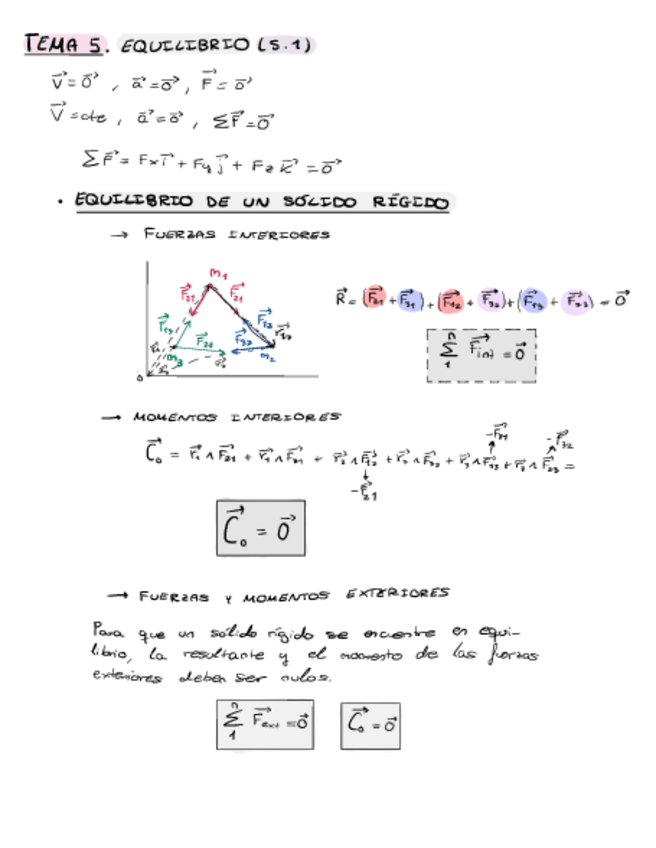 TEMA 5. EQUILIBRIO (5.1)
V⃗ = 0⃗ , a⃗ = 0⃗ , F⃗ = 0⃗
V⃗ = cte , a⃗ = 0⃗ , ΣF⃗ = 0⃗
ΣF⃗ = Fx i⃗ + Fy j⃗ + Fz k⃗ = 0⃗
• EQUILIBRIO DE UN SÓLIDO RÍGIDO
→ FUERZAS INTERIORES
m₁
F⃗₃₁ F⃗₂₁
m₃
m₂
0
R⃗ = (F⃗₂₁ + F⃗₃₁) + (F⃗₁₂ + F⃗₃₂) + (F⃗₁₃ + F⃗₂₃) = 0⃗
Σ₁ⁿ F⃗int = 0⃗
→ MOMENTOS INTERIORES
C⃗₀ = r⃗₁ ∧ F⃗₂₁ + r⃗₁ ∧ F⃗₃₁ + r⃗₂ ∧ F⃗₁₂ + r⃗₂ ∧ F⃗₃₂ + r⃗₃ ∧ F⃗₁₃ + r⃗₃ ∧ F⃗₂₃ =
-F⃗₃₁ -F⃗₃₂
-F⃗₂₁
C⃗₀ = 0⃗
→ FUERZAS Y MOMENTOS EXTERIORES
Para que un sólido rígido se encuentre en equi-
librio, la resultante y el momento de las fuerzas
exteriores deben ser nulos.
Σ₁ⁿ F⃗ext = 0⃗ C⃗₀ = 0⃗